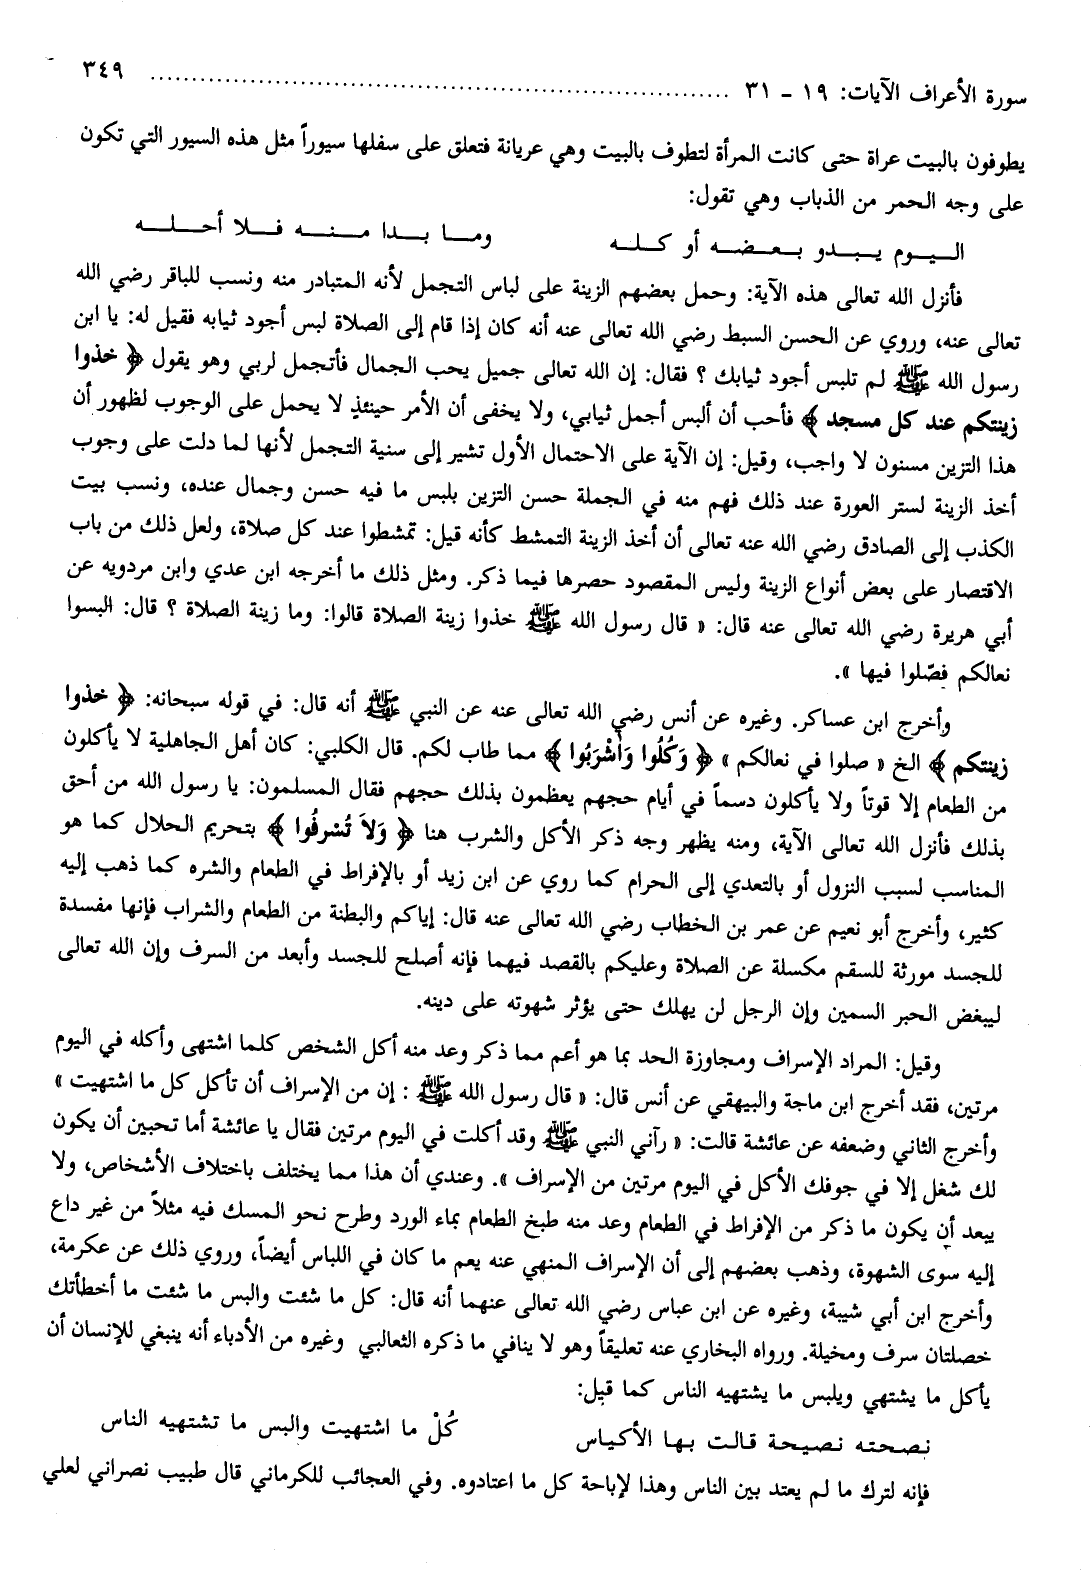 سورة الأعراف الآيات: ١٩ - ٣١ ........................................ ٣٤٩
يطوفون بالبيت عراة حتى كانت المرأة لتطوف بالبيت وهي عريانة فتعلق على سفلها سيوراً مثل هذه السيور التي تكون
على وجه الحمر من الذباب وهي تقول:
اليوم يبدو بعضه أو كله وما بدا منه فلا أحله
فأنزل الله تعالى هذه الآية: وحمل بعضهم الزينة على لباس التجمل لأنه المتبادر منه ونسب للباقر رضي الله
تعالى عنه، وروي عن الحسن السبط رضي الله تعالى عنه أنه كان إذا قام إلى الصلاة لبس أجود ثيابه فقيل له: يا ابن
رسول الله ﷺ لم تلبس أجود ثيابك ؟ فقال: إن الله تعالى جميل يحب الجمال فأتجمل لربي وهو يقول ﴿ خذوا
زينتكم عند كل مسجد ﴾ فأحب أن ألبس أجمل ثيابي، ولا يخفى أن الأمر حينئذٍ لا يحمل على الوجوب لظهور أن
هذا التزين مسنون لا واجب، وقيل: إن الآية على الاحتمال الأول تشير إلى سنية التجمل لأنها لما دلت على وجوب
أخذ الزينة لستر العورة عند ذلك فهم منه في الجملة حسن التزين بلبس ما فيه حسن وجمال عنده، ونسب بيت
الكذب إلى الصادق رضي الله عنه تعالى أن أخذ الزينة التمشط كأنه قيل: تمشطوا عند كل صلاة، ولعل ذلك من باب
الاقتصار على بعض أنواع الزينة وليس المقصود حصرها فيما ذكر. ومثل ذلك ما أخرجه ابن عدي وابن مردويه عن
أبي هريرة رضي الله تعالى عنه قال: « قال رسول الله ﷺ خذوا زينة الصلاة قالوا: وما زينة الصلاة ؟ قال: البسوا
نعالكم فصّلوا فيها ».
وأخرج ابن عساكر. وغيره عن أنس رضي الله تعالى عنه عن النبي ﷺ أنه قال: في قوله سبحانه: ﴿ خذوا
زينتكم ﴾ الخ « صلوا في نعالكم » ﴿ وَكُلُوا وَاشْرَبُوا ﴾ مما طاب لكم. قال الكلبي: كان أهل الجاهلية لا يأكلون
من الطعام إلا قوتاً ولا يأكلون دسماً في أيام حجهم يعظمون بذلك حجهم فقال المسلمون: يا رسول الله من أحق
بذلك فأنزل الله تعالى الآية، ومنه يظهر وجه ذكر الأكل والشرب هنا ﴿ وَلاَ تُسْرِفُوا ﴾ بتحريم الحلال كما هو
المناسب لسبب النزول أو بالتعدي إلى الحرام كما روي عن ابن زيد أو بالإفراط في الطعام والشره كما ذهب إليه
كثير، وأخرج أبو نعيم عن عمر بن الخطاب رضي الله تعالى عنه قال: إياكم والبطنة من الطعام والشراب فإنها مفسدة
للجسد مورثة للسقم مكسلة عن الصلاة وعليكم بالقصد فيهما فإنه أصلح للجسد وأبعد من السرف وإن الله تعالى
ليبغض الحبر السمين وإن الرجل لن يهلك حتى يؤثر شهوته على دينه.
وقيل: المراد الإسراف ومجاوزة الحد بما هو أعم مما ذكر وعد منه أكل الشخص كلما اشتهى وأكله في اليوم
مرتين، فقد أخرج ابن ماجة والبيهقي عن أنس قال: « قال رسول الله ﷺ : إن من الإسراف أن تأكل كل ما اشتهيت »
وأخرج الثاني وضعفه عن عائشة قالت: « رآني النبي ﷺ وقد أكلت في اليوم مرتين فقال يا عائشة أما تحبين أن يكون
لك شغل إلا في جوفك الأكل في اليوم مرتين من الإسراف ». وعندي أن هذا مما يختلف باختلاف الأشخاص، ولا
يبعد أن يكون ما ذكر من الإفراط في الطعام وعد منه طبخ الطعام بماء الورد وطرح نحو المسك فيه مثلاً من غير داع
إليه سوى الشهوة، وذهب بعضهم إلى أن الإسراف المنهي عنه يعم ما كان في اللباس أيضاً، وروي ذلك عن عكرمة،
وأخرج ابن أبي شيبة، وغيره عن ابن عباس رضي الله تعالى عنهما أنه قال: كل ما شئت والبس ما شئت ما أخطأتك
خصلتان سرف ومخيلة. ورواه البخاري عنه تعليقاً وهو لا ينافي ما ذكره الثعالبي وغيره من الأدباء أنه ينبغي للإنسان أن
يأكل ما يشتهي ويلبس ما يشتهيه الناس كما قيل:
نصحته نصيحة قالت بها الأكياس كُلْ ما اشتهيت والبس ما تشتهيه الناس
فإنه لترك ما لم يعتد بين الناس وهذا لإباحة كل ما اعتادوه. وفي العجائب للكرماني قال طبيب نصراني لعلي